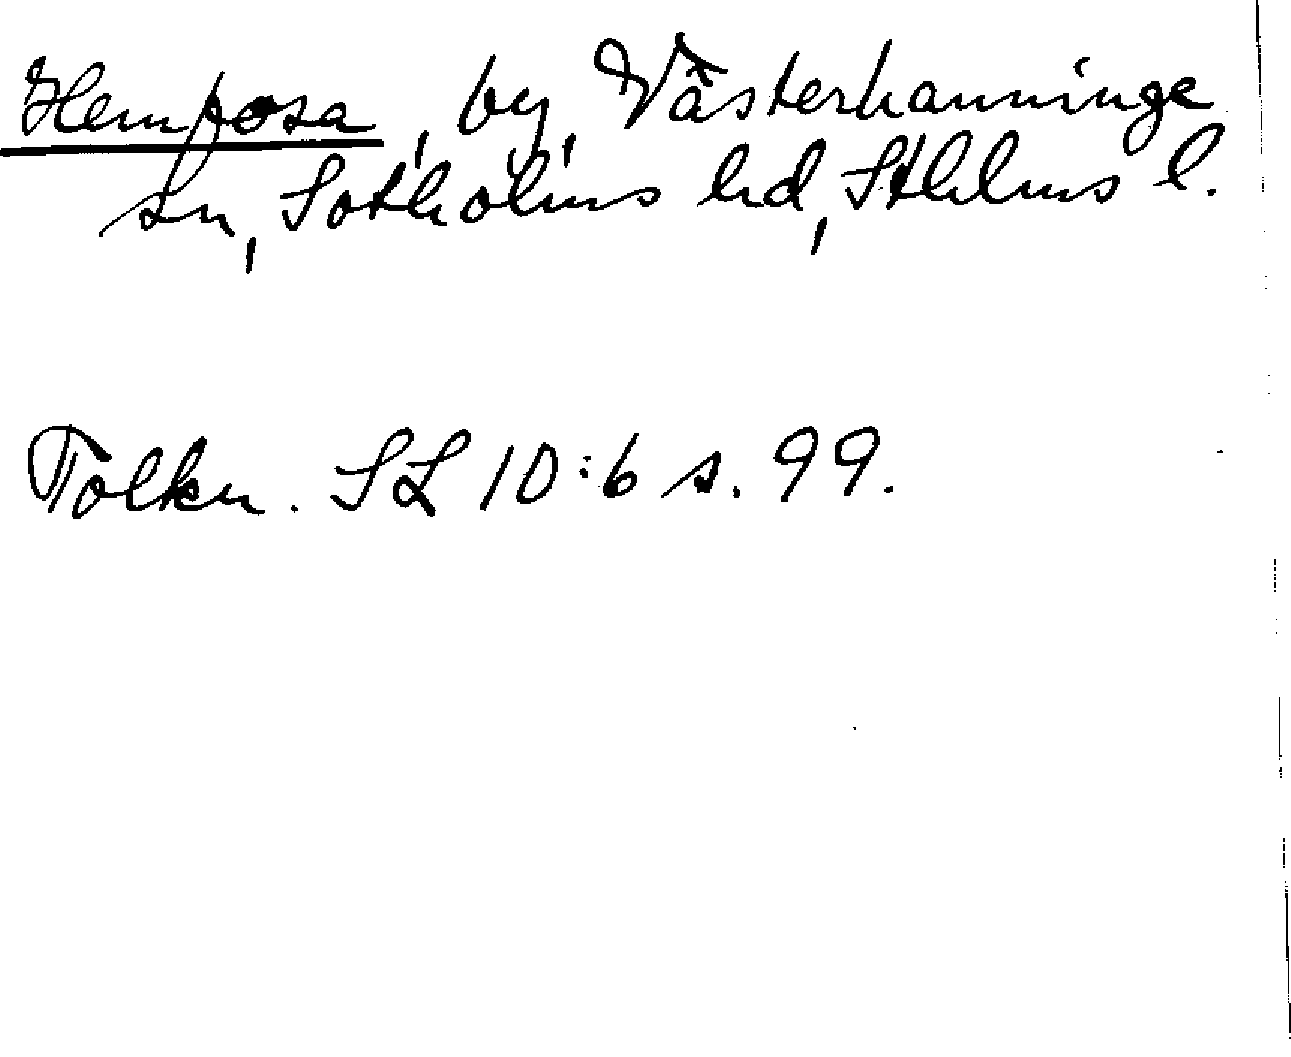 Hemfosa, by, Västerhanninge
sn, Sotholms hd, Sthlms l.
Tolkn. SL 10:6 s. 99.